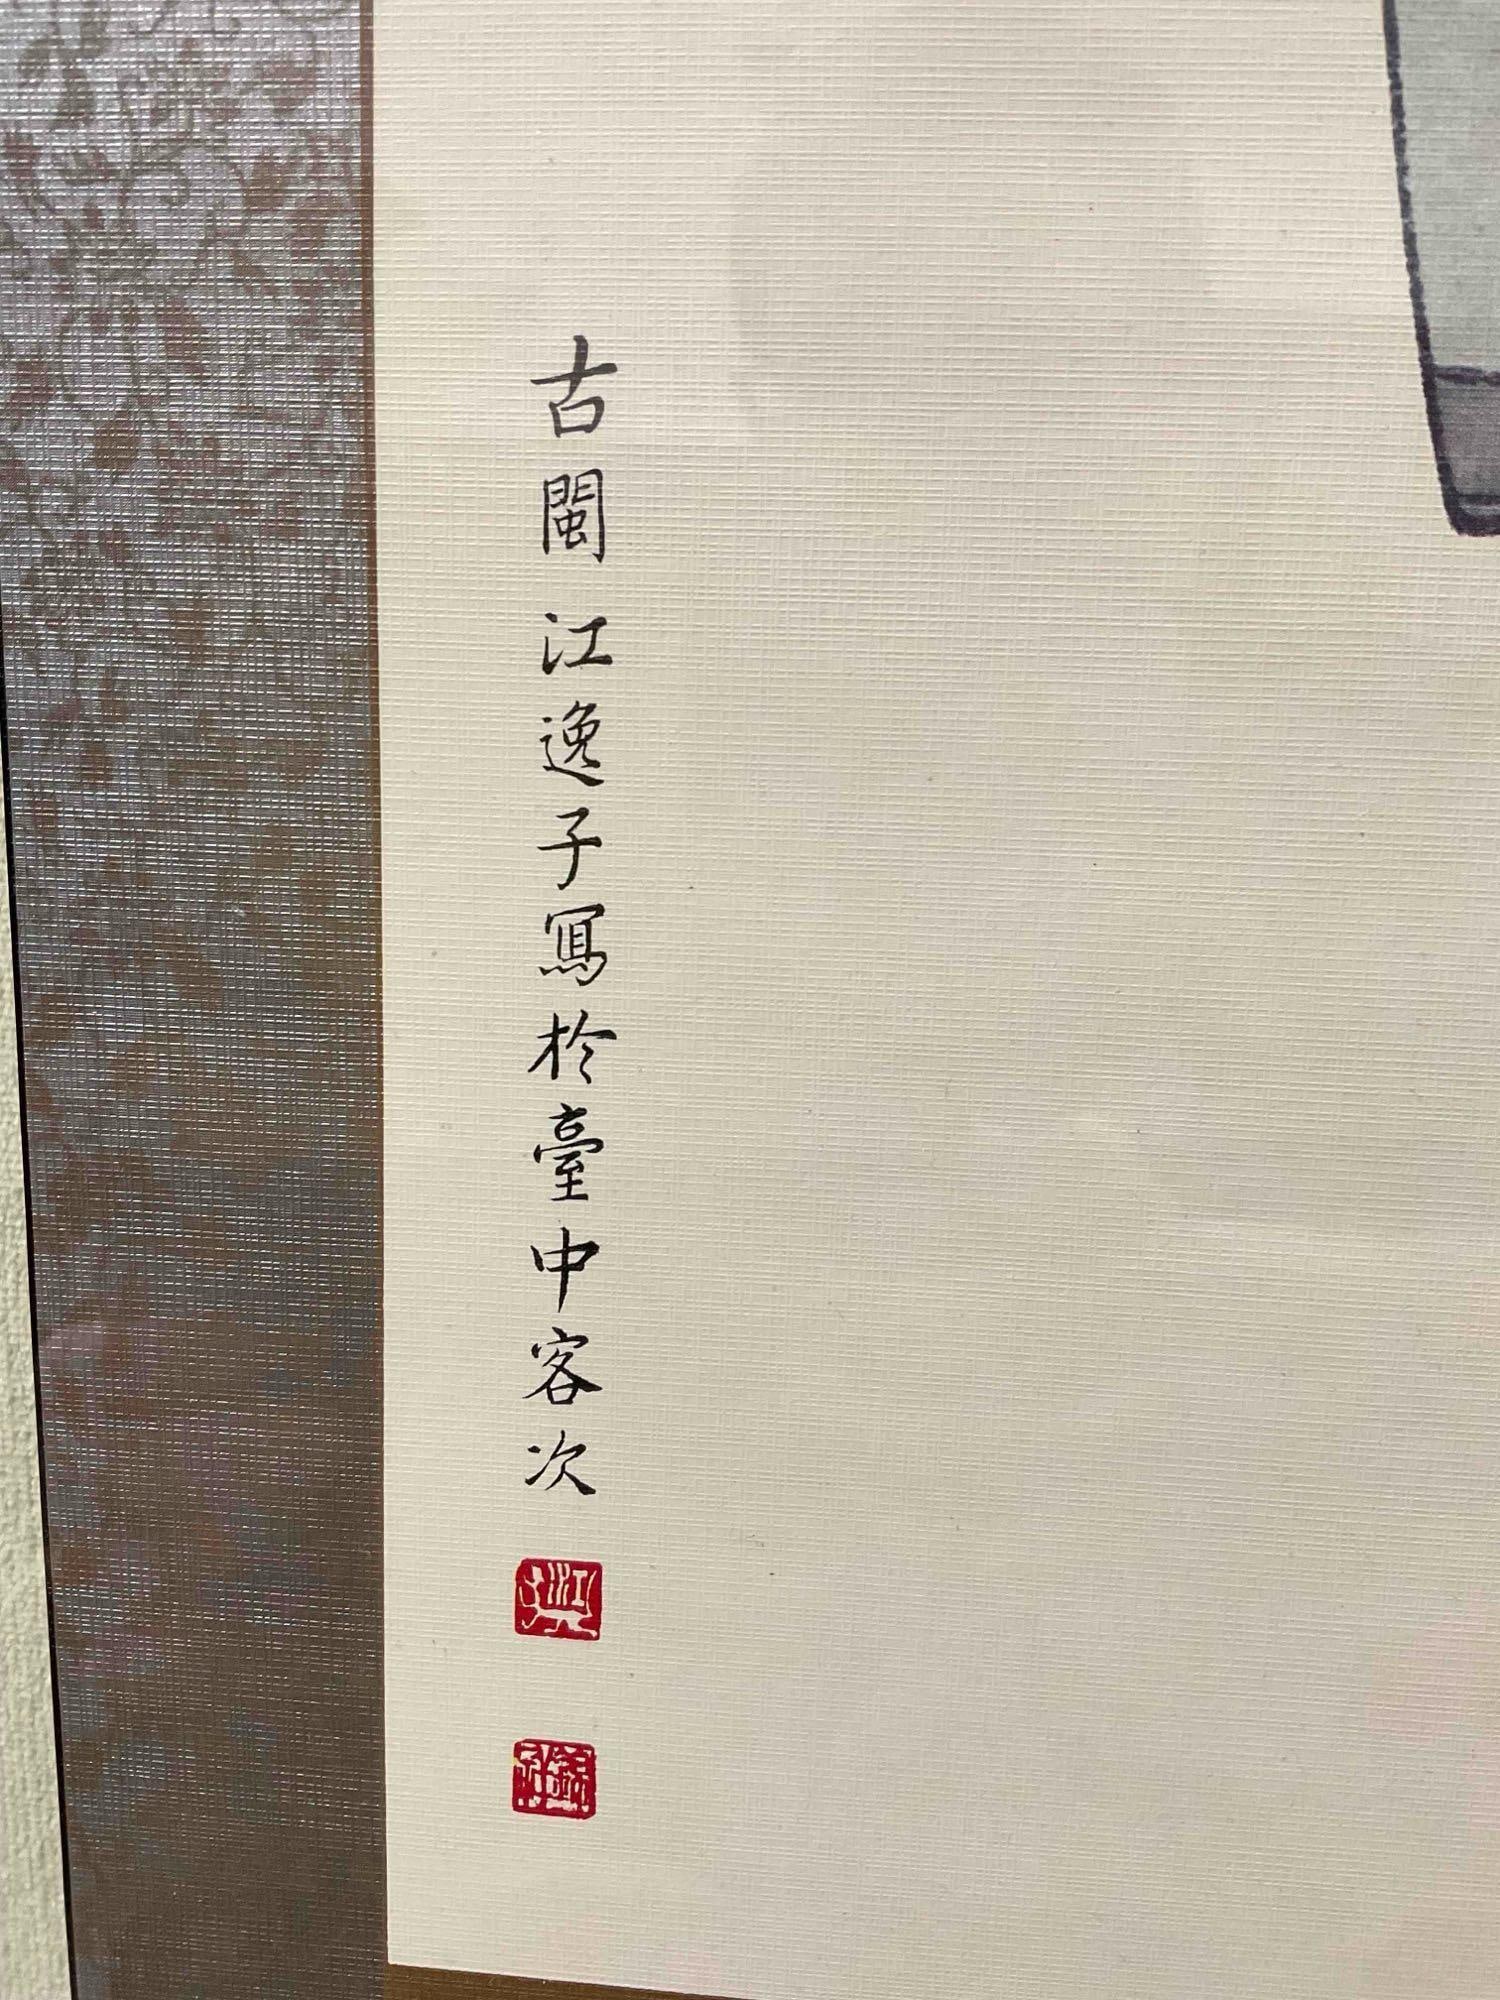 古閩 江逸子寫於臺中客次